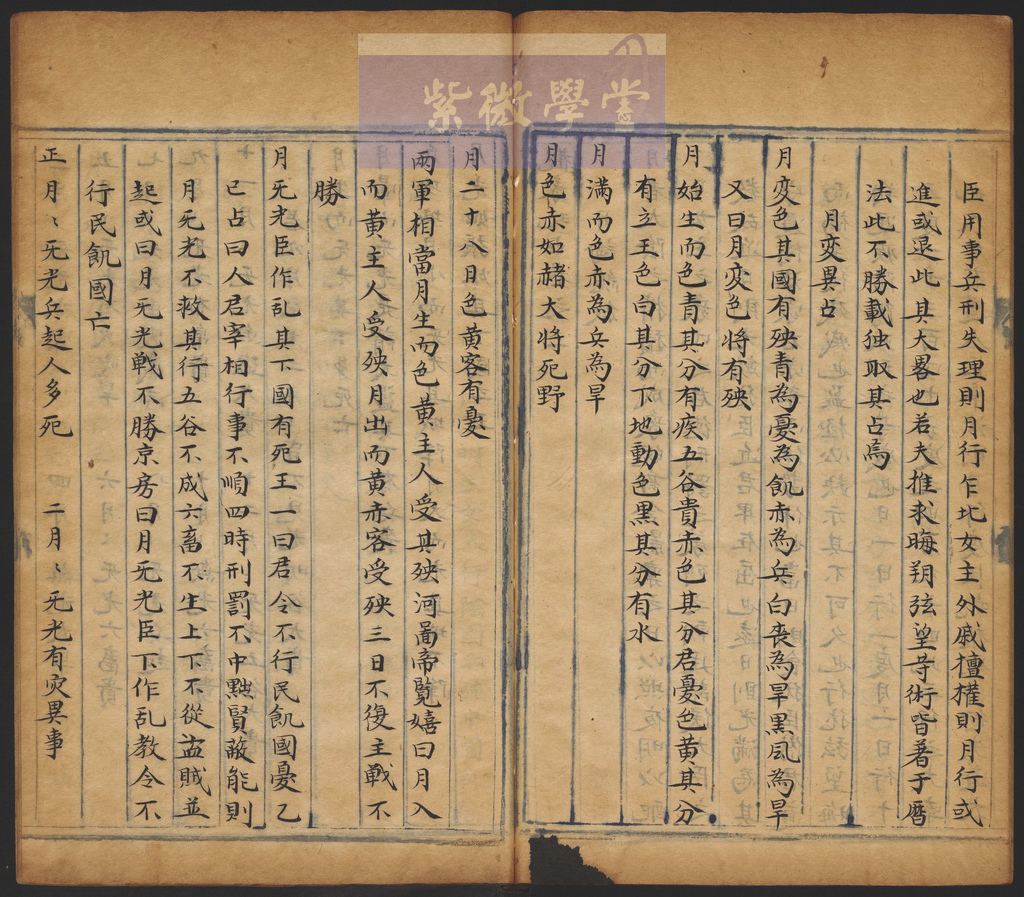 紫微學堂
臣用事兵刑失理則月行乍北女主外戚擅權則月行或
進或退此其大畧也若夫推求晦朔弦望等術皆著于曆
法此不勝載独取其占焉
月変異占
月変色其國有殃青為憂為飢赤為兵白喪為旱黑風為旱
又曰月变色将有殃
月始生而色青其分有疾五谷貴赤色其分君憂色黄其分
有立王色白其分下地動色黑其分有水
月満而色赤為兵為旱
月色赤如赭大将死野
月二十八日色黄客有憂
兩軍相當月生而色黄主人受其殃河啚帝覧嬉曰月入
而黄主人受殃月出而黄赤客受殃三日不復主戰不
勝
月旡光臣作乱其下國有死王一曰君令不行民飢國憂乙
巳占曰人君宰相行事不順四時刑罰不中黜賢蔽能則
月旡光不救其行五谷不成六畜不生上下不從盗賊並
起或曰月旡光戦不勝京房曰月旡光臣下作乱教令不
行民飢國亡
正月〻旡光兵起人多死　二月〻旡光有灾異事